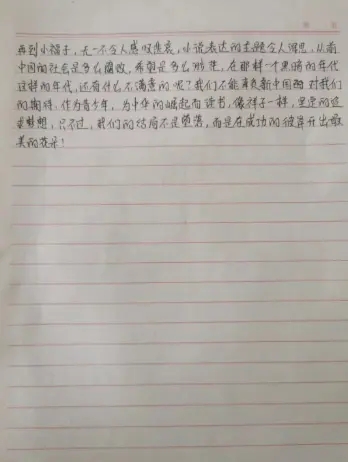 再到小福子，无一不令人感叹悲哀，小说表达的主题令人深思，从前
中国的社会是多么腐败，希望是多么渺茫，在那样一个黑暗的年代
这样的年代，还有什么不满意的呢？我们不能辜负新中国对我们
的期待，作为青少年，为中华的崛起而读书，像祥子一样，坚定的追
求梦想，只不过，我们的结局不是堕落，而是在成功的彼岸开出最
美的花朵！